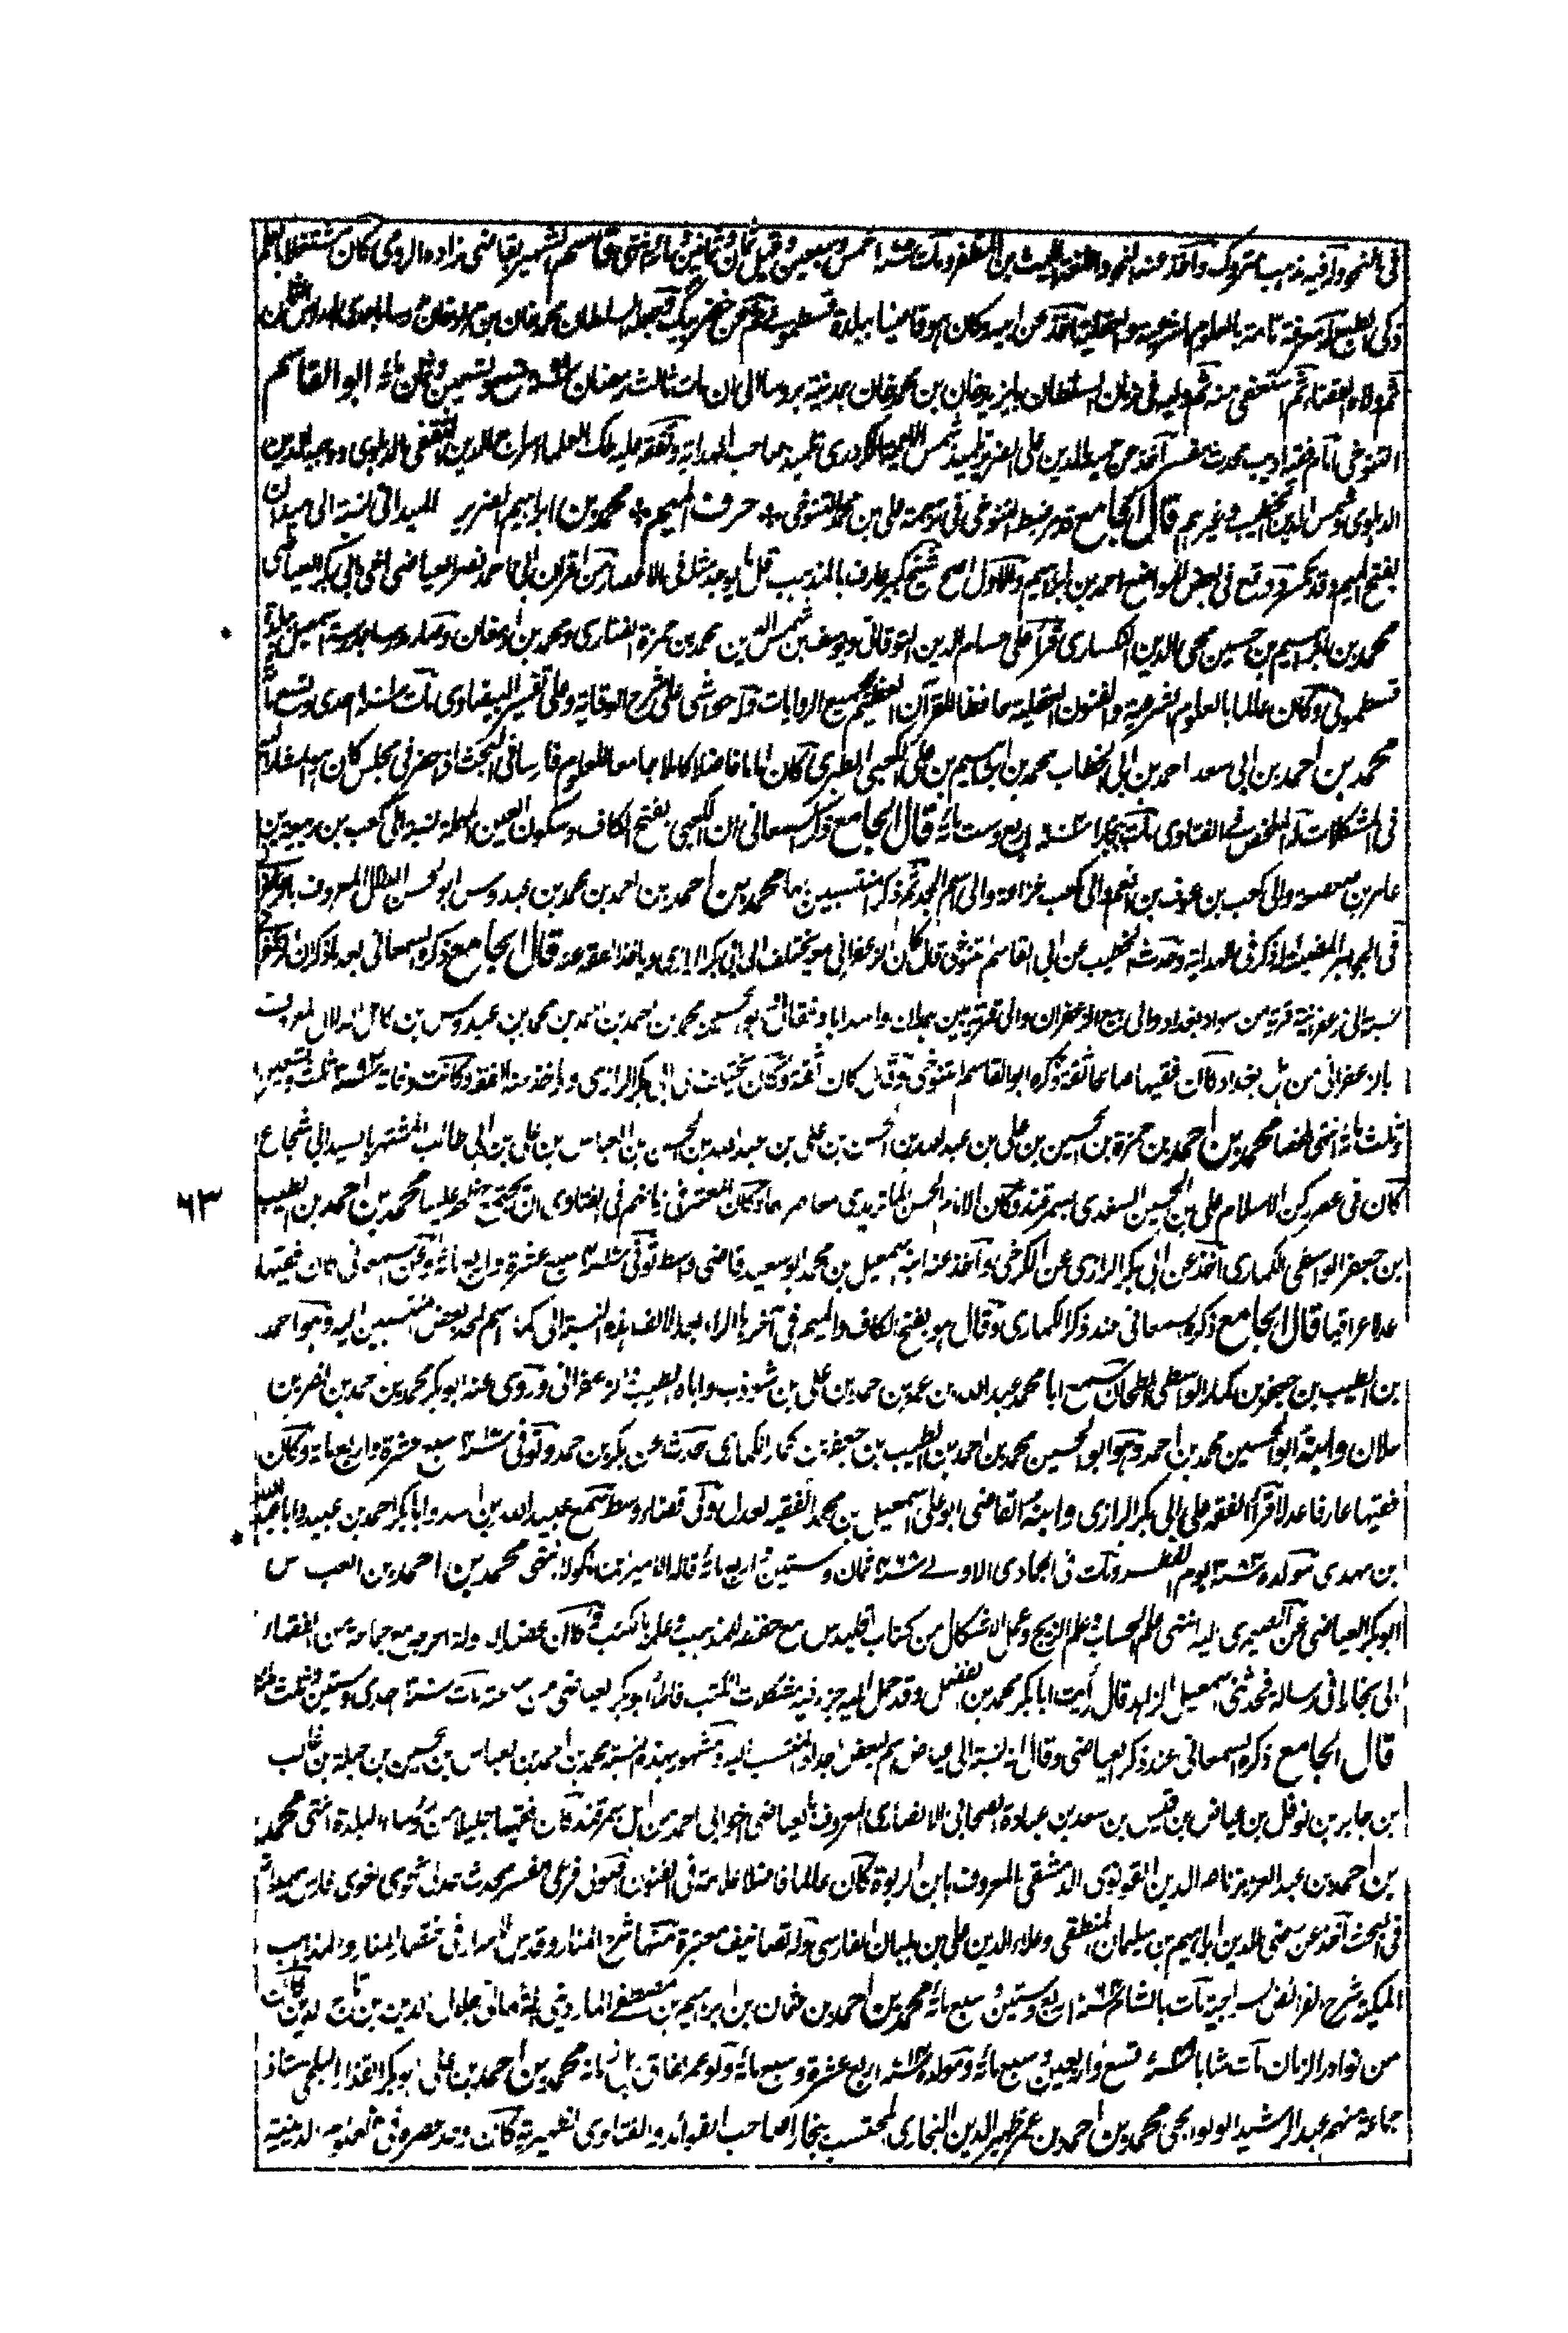 في النحو وله فيه مذهب متروك وأخذ عنه النحو واللغة الليث بن المظفر ومات سنة خمس وسبعين وقيل ثمان وثمانين ومائة انتهى قاسم الشهير بقاضي زاده الرومي كان مشتغلا بالعلم
ذكي الطبع له معرفة تامة بالعلوم الشرعية والعقلية أخذ عن أبيه وكان هو قاضيا ببلدة قسطموني ثم عن خضر بيك وجعله السلطان محمد خان بن مراد خان مدرسا بإحدى المدارس الثمان
ثم ولاه القضاء ثم استعفى منه ثم وليه في زمان السلطان بايزيد خان بن محمد خان بمدينة بروسا إلى أن مات ثالث رمضان سنة تسع وتسعين وثمان مائة أبو القاسم
التنوخي إمام فقيه أديب محدث مفسر أخذ عن حميد الدين علي الضرير تلميذ شمس الأئمة الكردري تلميذ صاحب الهداية وتفقه عليه ملك العلماء سراج الدين الثقفي الدهلوي ووجيه الدين
الدهلوي وشمس الدين الخطيب وغيرهم قال الجامع قد مر ضبط التنوخي في ترجمة علي بن محمد التنوخي * حرف الميم * محمد بن إبراهيم الضرير الميداني نسبة إلى ميدان
بفتح الميم وقد يكسر ووقع في بعض المواضع أحمد بن إبراهيم والأول أصح شيخ كبير عارف بالمذهب قل ما يوجد مثله في الأعصار من أقران أبي أحمد نصر العياضي أخي أبي بكر العياضي
محمد بن إبراهيم بن حسين محي الدين النكساري قرأ على حسام الدين التوقاتي ويوسف بن شمس الدين محمد بن حمزة الفناري ومحمد بن أرمغان وصار مدرسا بمدرسة إسمعيل ببلدة
قسطموني وكان عالما بالعلوم الشرعية والفنون العقلية حافظا للقرآن العظيم بجميع الروايات وله حواشي على شرح الوقاية وعلى تفسير البيضاوي مات سنة إحدى وتسعمائة
محمد بن أحمد بن أبي سعد أحمد بن أبي الخطاب محمد بن إبراهيم بن علي الكعبي الطبري كان إماما فاضلا كاملا جامعا للعلوم فارسا في البحث إذا حضر في مجلس كان هو المشار إليه
في المشكلات له الملخص في الفتاوى مات ببخارا سنة أربع وست مائة قال الجامع ذكر السمعاني أن الكعبي بفتح الكاف وسكون العين المهملة نسبة إلى كعب بن ربيعة بن
عامر بن صعصعة وإلى كعب بن عوف بن أنعم وإلى كعب خزاعة وإلى اسم الجد ثم ذكر منتسبين بها محمد بن أحمد بن أحمد بن محمد بن عبدوس أبو الحسن الدلال المعروف بالزعفراني
في الجواهر المضيئة له ذكر في الهداية وحدث الخطيب عن أبي القاسم التنوخي قال كان الزعفراني هو يختلف إلى أبي بكر الرازي ويأخذ الفقه عنه قال الجامع ذكره السمعاني بعد ما ذكر أن الزعفراني
نسبة إلى زعفرانية قرية من سواد بغداد وإلى بيع الزعفران وإلى قرية بين همدان وأسداباد فقال أبو الحسين محمد بن أحمد بن أحمد بن محمد بن عبدوس بن كامل الدلال المعروف
بالزعفراني من أهل بغداد كان فقيها صالحا ثقة ذكره أبو القاسم التنوخي وقال كان ثقة وكان يختلف إلى أبي بكر الرازي ويأخذ منه الفقه وكانت وفاته سنة ثلث وتسعين
وثلث مائة انتهى ملخصا محمد بن أحمد بن حمزة بن الحسين بن علي بن عبد الله بن الحسن بن علي بن عبيد الله بن الحسن بن العباس بن علي بن أبي طالب المشتهر بالسيد أبي شجاع
كان في عصر ركن الإسلام علي بن الحسين السغدي بسمرقند وكان الإمام الحسن الماتريدي معاصرهما وكان المعتبر في زمانهم في الفتاوى أن يجتمع خطهم عليها محمد بن أحمد بن الطيب
بن جعفر الواسطي الكماري أخذ عن أبي بكر الرازي عن الكرخي وأخذ عنه ابنه إسمعيل بن محمد أبو سعيد قاضي واسط توفي سنة سبع عشرة وأربع مائة وعن السمعاني كان فقيها
عدلا عراقيا قال الجامع ذكره السمعاني عند ذكر الكماري وقال هو بفتح الكاف والميم في آخرها الراء بعد الألف هذه النسبة إلى كمار اسم لجد بعض المنتسبين إليه وهو أحمد
بن الطيب بن جعفر بن كمار الواسطي الطحان سمع أبا محمد عبد الله بن عمر بن حمد بن علي بن شوذب وأباه الطيب الزعفراني وروى عنه أبو بكر محمد بن حمد بن نصر بن
ملان وابنه أبو الحسين محمد بن أحمد وهو أبو الحسين محمد بن أحمد بن الطيب بن جعفر بن كمار الكماري حدث عن بكر بن حمد وتوفي سنة سبع عشرة وأربعمائة وكان
فقيها عارفا عدلا قرأ الفقه على أبي بكر الرازي وابنه القاضي أبو علي إسمعيل بن محمد الفقيه العدل ولي قضاء واسط سمع عبيد الله بن أسد وأبا بكر أحمد بن عبيد وأبا عبد الله
بن مهدي مولده سنة يوم الفطر ومات في الجمادى الأولى سنة ٤٦٨ ثمان وستين وأربع مائة قاله الأمير بن ماكولا انتهى محمد بن أحمد بن العباس
أبو بكر العياضي عن الصيمري إليه انتهى علم الحساب وعلم الزيج وعمل الأشكال من كتاب اقليدس مع حفظه المذهب وعلمه بالكتب وكان عضل الدولة أخرجه مع جماعة من الفقهاء
إلى بخارا في رسالة فحدثني إسمعيل الزاهد قال رأيت أبا بكر محمد بن الفضل وقد حمل إليه جزء فيه مشكلات الكتب فأملأ أبو بكر العياضي من ساعته مات سنة إحدى وستين وثلث مائة
قال الجامع ذكره السمعاني عند ذكر العياضي وقال إنه نسبة إلى عياض اسم لبعض أجداد المنتسب إليه ومشهور بهذه النسبة محمد بن أحمد بن العباس بن الحسين بن جبلة بن غالب
بن جابر بن نوفل بن عياض بن قيس بن سعد بن عبادة الصحابي الأنصاري المعروف بالعياضي أخو أبي أحمد من أهل سمرقند كان فقيها جليلا من رؤساء البلدة انتهى محمد
بن أحمد بن عبد العزيز ناصر الدين القونوي الدمشقي المعروف بابن الربوة كان عالما فاضلا علامة في الفنون أصولي فرعي مفسر محدث جدلي نحوي لغوي فارس ميدانه
في البحث أخذ عن رضي الدين إبراهيم بن سليمان المنطقي وعلاء الدين علي بن بلبان الفارسي وله تصانيف معتبرة منها شرح المنار وقدس الأسرار في مختصر المنار والمذاهب
المكية شرح الفرائض السراجية مات بالشام سنة أربع وستين وسبع مائة محمد بن أحمد بن عثمان بن إبراهيم بن مصطفى المارديني التركماني جلال الدين بن تاج الدين كان
من نوادر الزمان مات شابا سنة تسع وأربعين وسبع مائة ومولده سنة أربع عشرة وسبع مائة ولو عمر لفاق أهل زمانه محمد بن أحمد بن علي أبو بكر القزاز البلخي أستاذ
جماعة منهم عبد الرشيد الولوالجي محمد بن أحمد بن عمر ظهير الدين البخاري المحتسب ببخارا صاحب الفوائد والفتاوى الظهيرية كان وحد عصره في العلوم الدينية
٦٣